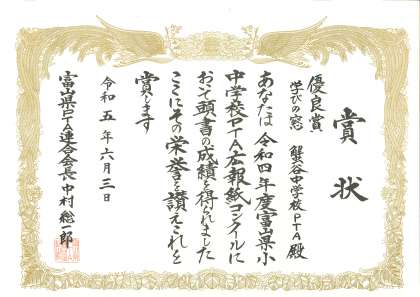 賞状
優良賞
学びの窓 蟹谷中学校PTA殿
あなたは令和四年度富山県小
中学校PTA広報紙コンクールに
おいて頭書の成績を得られました
ここにその栄誉を讃えこれを
賞します
令和五年六月三日
富山県PTA連合会長 中村総一郎